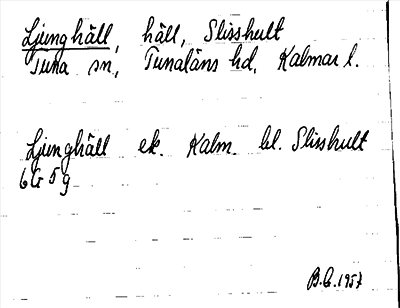 Ljunghäll, häll, Slisshult
Tuna sn, Tunaläns hd, Kalmar l.
Ljunghäll ek. Kalm. bl. Slisshult
6G 5g
B.G. 1957